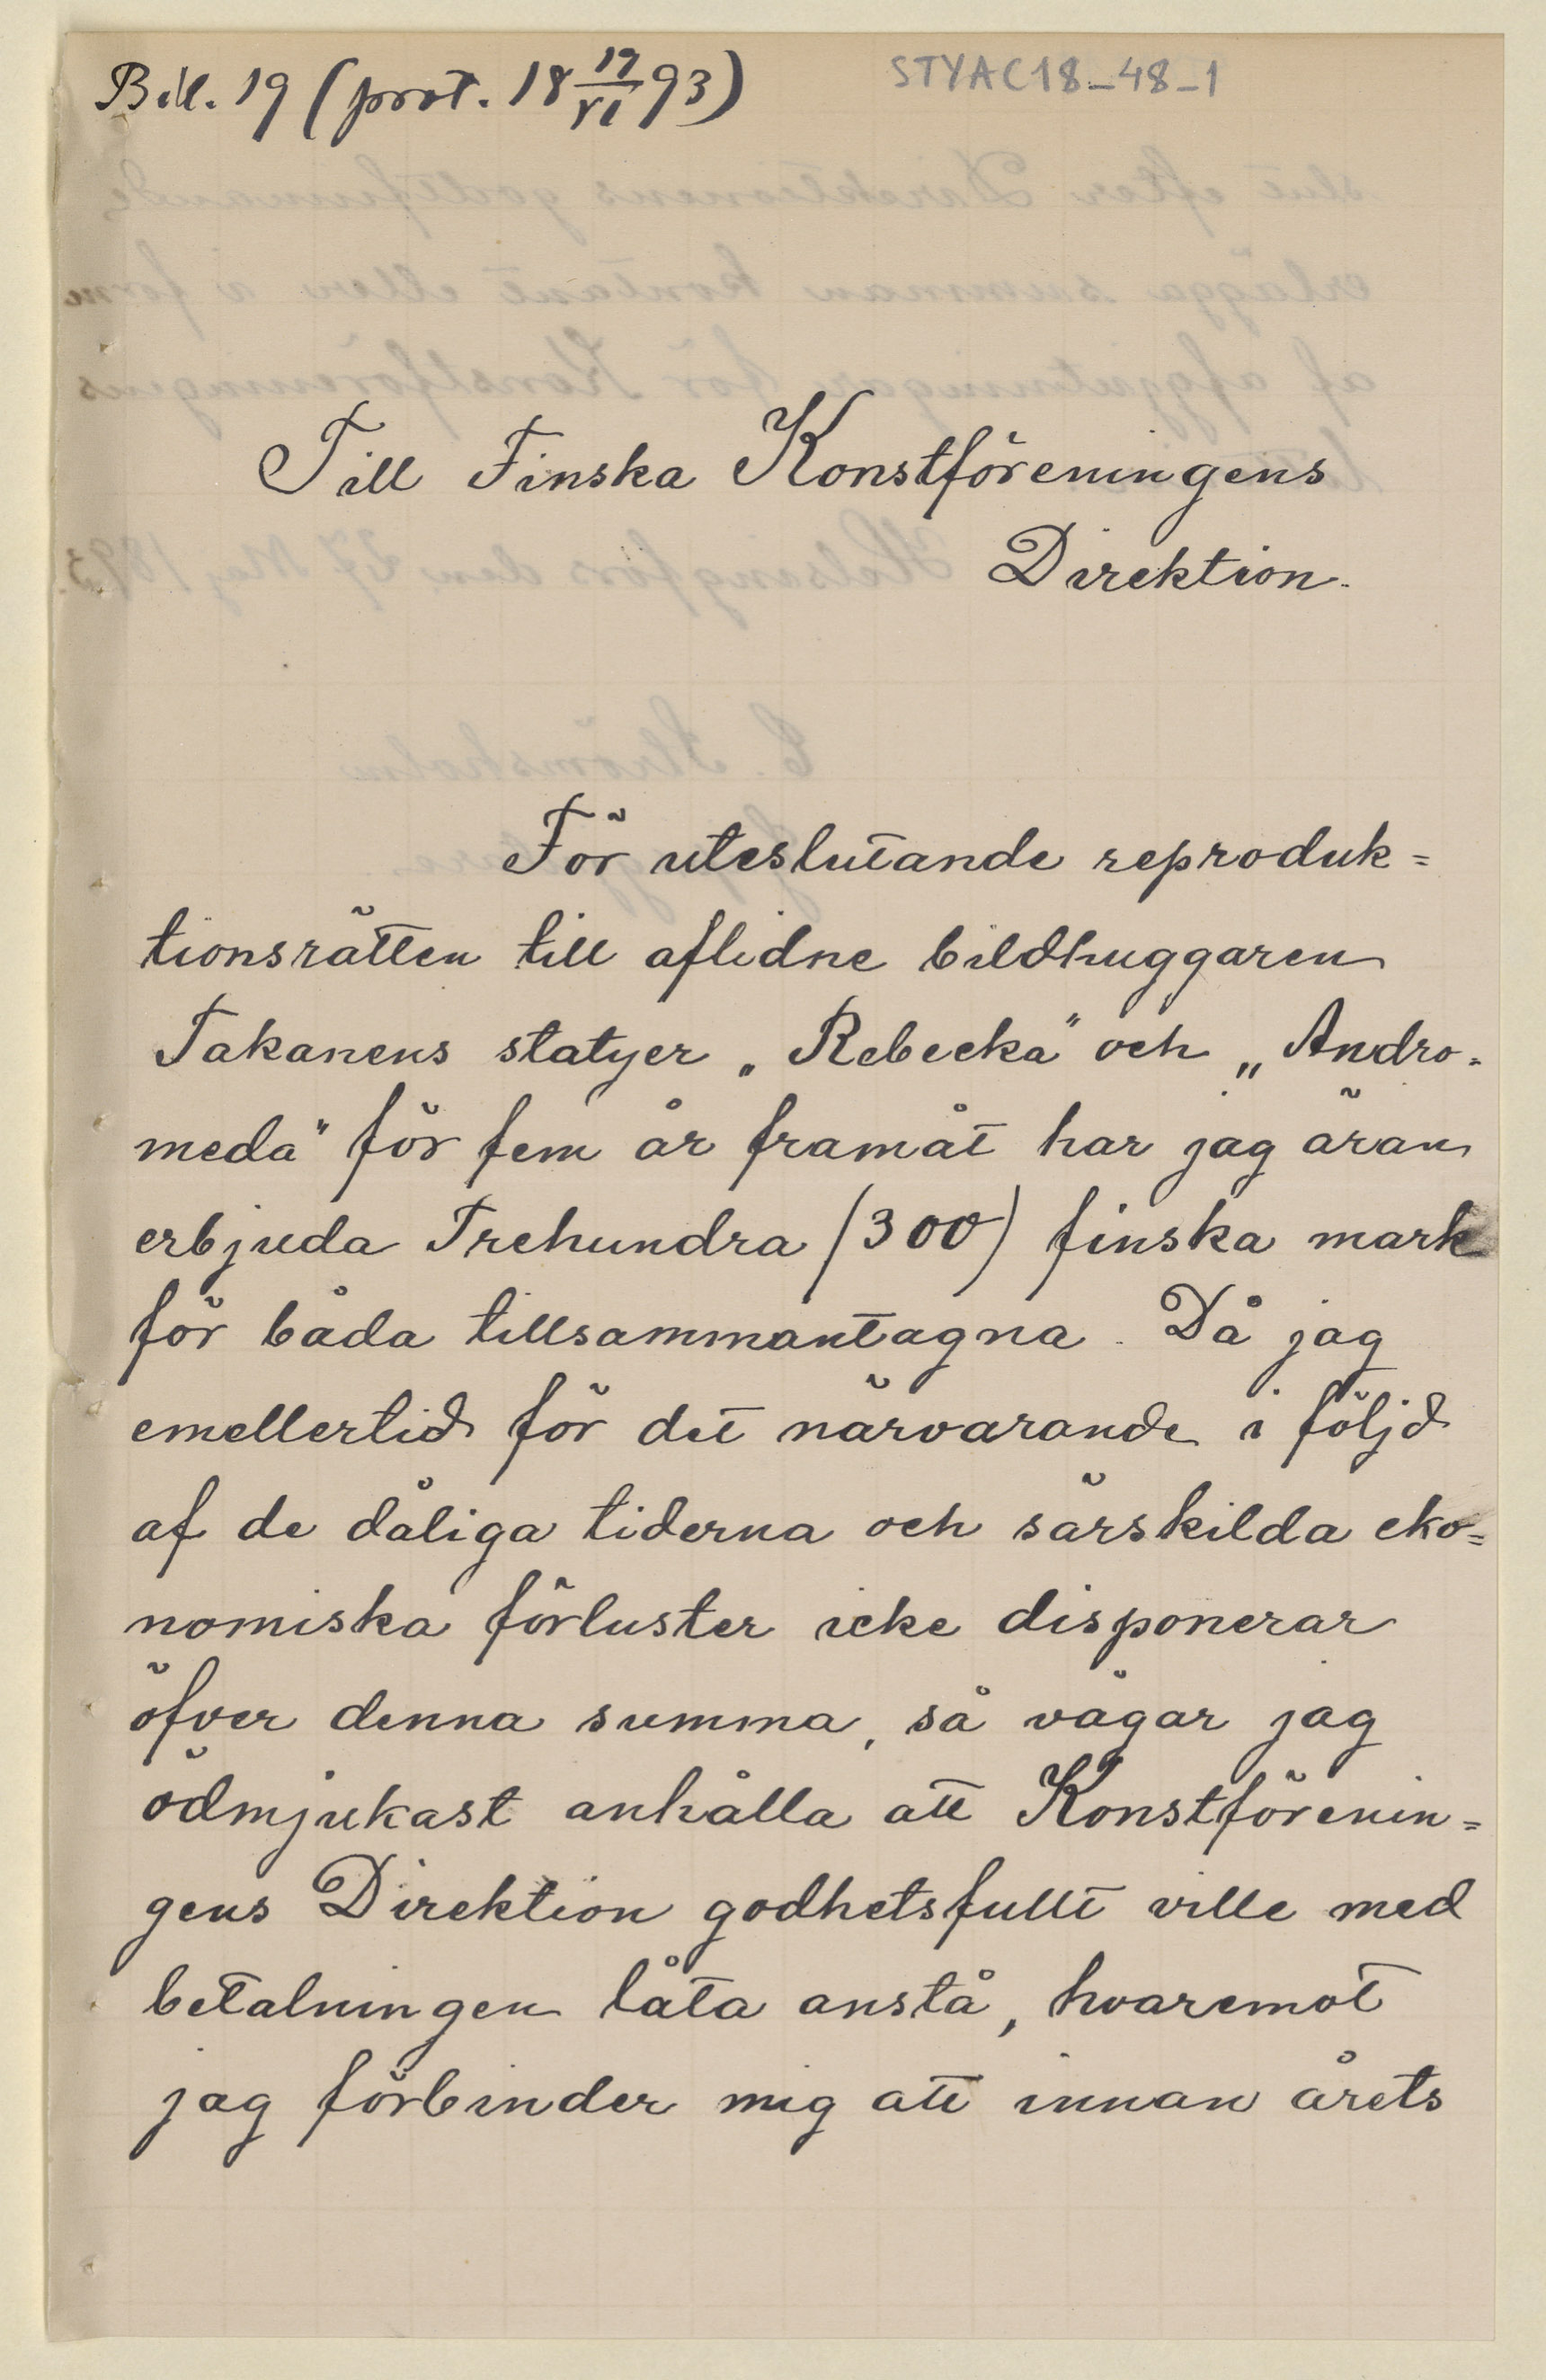 Bil. 19 (prot. 18 19/VI 93)
STYAC18-48-1
Till Finska Konstföreningens
Direktion.
För uteslutande reproduk=
tionsrätten till aflidne bildhuggaren
Takanens statyer „Rebecka" och „Andro-
meda" för fem år framåt har jag äran
erbjuda Trehundra (300) finska mark
för båda tillsammantagna. Då jag
emellertid för det närvarande i följd
af de dåliga tiderna och särskilda eko=
nomiska förluster icke disponerar
öfver denna summa, så vågar jag
ödmjukast anhålla att Konstförenin=
gens Direktion godhetsfullt ville med
betalningen låta anstå, hvaremot
jag förbinder mig att innan årets